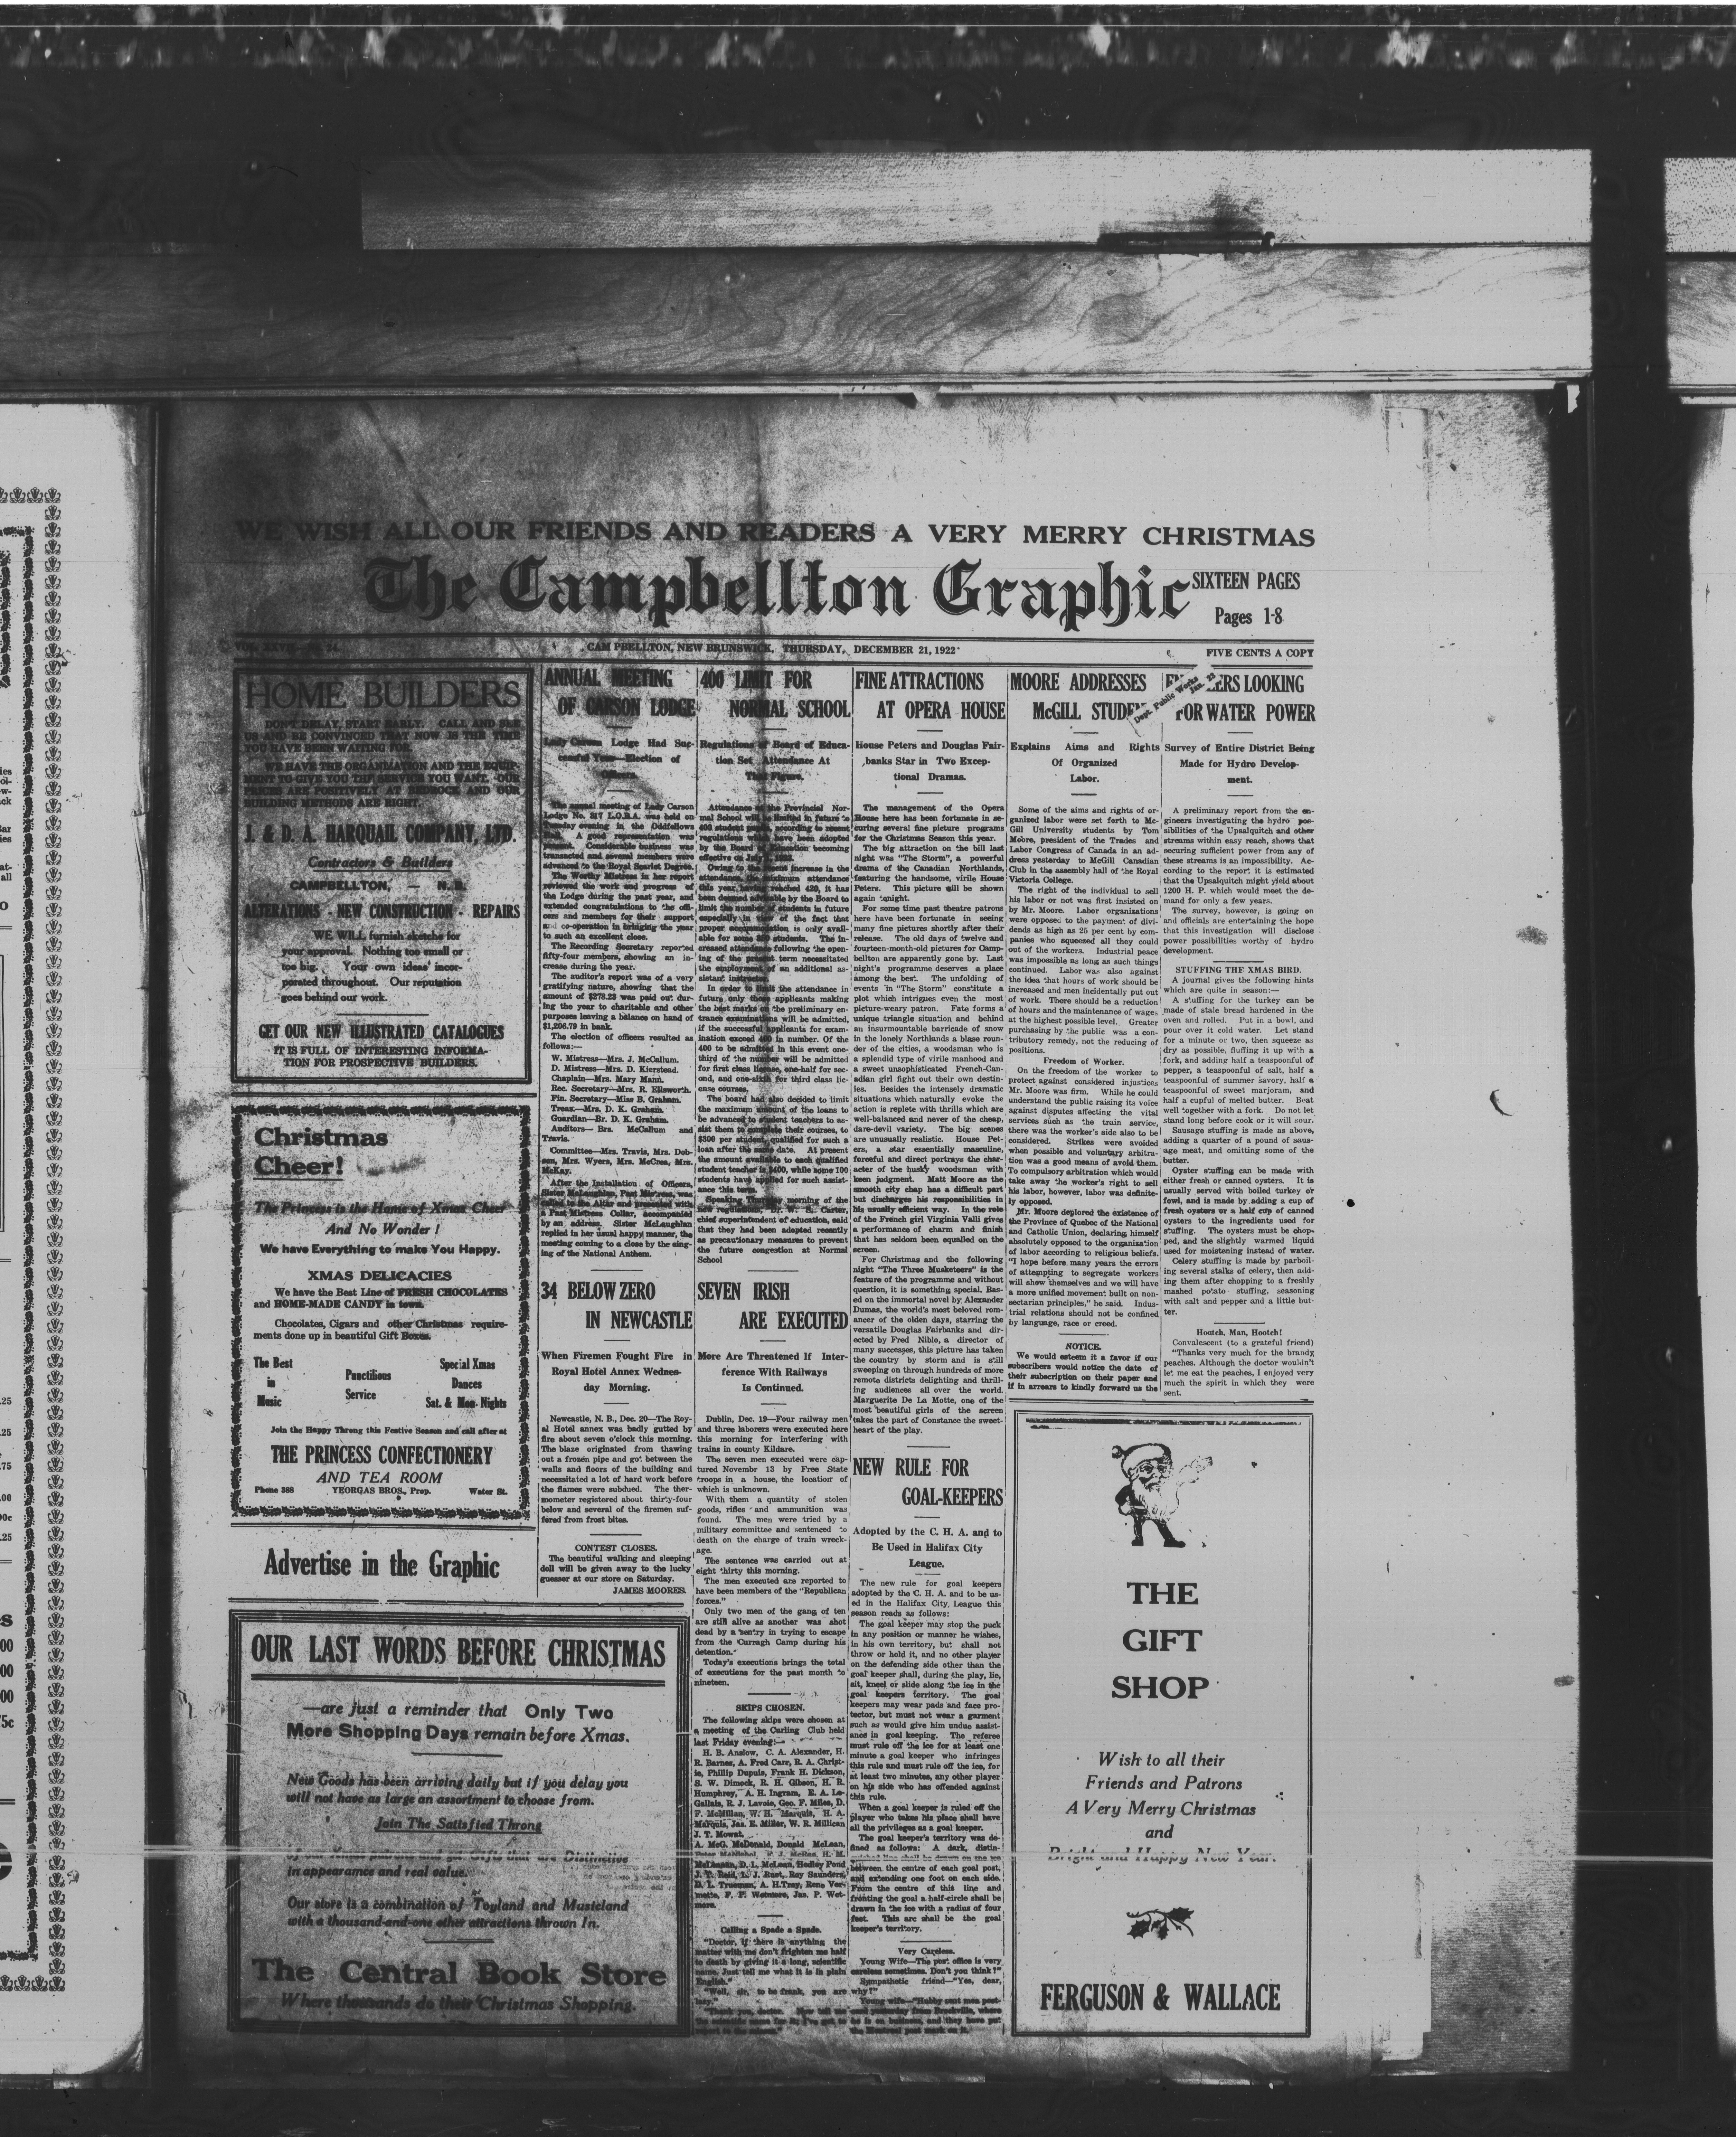 WE WISH ALL OUR FRIENDS AND READERS A VERY MERRY CHRISTMAS
The Campbellton Graphic
SIXTEEN PAGES
Pages 1-8
CAMPBELLTON, NEW BRUNSWICK, THURSDAY, DECEMBER 21, 1922
FIVE CENTS A COPY
HOME BUILDERS
DON'T DELAY, START EARLY. CALL AND SEE
US AND BE CONVINCED THAT NOW IS THE TIME
YOU HAVE BEEN WAITING FOR.
WE HAVE THE ORGANIZATION AND THE EQUIP-
MENT TO GIVE YOU THE SERVICE YOU WANT. OUR
PRICES ARE POSITIVELY AT BEDROCK AND OUR
BUILDING METHODS ARE RIGHT.
J. & D. A. HARQUAIL COMPANY, LTD.
Contractors & Builders
CAMPBELLTON, — N. B.
ALTERATIONS - NEW CONSTRUCTION - REPAIRS
WE WILL furnish sketchs for
your approval. Nothing too small or
too big. Your own ideas' incor-
porated throughout. Our reputation
goes behind our work.
GET OUR NEW ILLUSTRATED CATALOGUES
IT IS FULL OF INTERESTING INFORMA-
TION FOR PROSPECTIVE BUILDERS.
Christmas
Cheer!
The Princess is the Home of Xmas Cheer
And No Wonder!
We have Everything to make You Happy.
XMAS DELICACIES
We have the Best Line of FRESH CHOCOLATES
and HOME-MADE CANDY in town.
Chocolates, Cigars and other Christmas require-
ments done up in beautiful Gift Boxes.
The Best
in
Music
Punctilious
Service
Special Xmas
Dances
Sat. & Mon. Nights
Join the Happy Throng this Festive Season and call after at
THE PRINCESS CONFECTIONERY
AND TEA ROOM
Phone 388 YEORGAS BROS., Prop. Water St.
Advertise in the Graphic
OUR LAST WORDS BEFORE CHRISTMAS
—are just a reminder that Only Two
More Shopping Days remain before Xmas.
New Goods has been arriving daily but if you delay you
will not have as large an assortment to choose from.
Join The Satisfied Throng
in appearamce and real value.
Our store is a combination of Toyland and Musicland
with a thousand-and-one other attractions thrown In.
The Central Book Store
Where thousands do their Christmas Shopping.
ANNUAL MEETING
OF CARSON LODGE
Lady Carson Lodge Had Suc-
cessful Year—Election of
Officers.
The annual meeting of Lady Carson
Lodge No. 317 L.O.B.A. was held on
Tuesday evening in the Oddfellows
Hall. A good representation was
present. Considerable business was
transacted and several members were
advanced to the Royal Scarlet Degree.
The Worthy Mistress in her report
reviewed the work and progress of
the Lodge during the past year, and
extended congratulations to the offi-
cers and members for their support
and co-operation in bringing the year
to such an excellent close.
The Recording Secretary reported
fifty-four members, showing an in-
crease during the year.
The auditor's report was of a very
gratifying nature, showing that the
amount of $278.23 was paid out dur-
ing the year to charitable and other
purposes leaving a balance on hand of
$1,206.79 in bank.
The election of officers resulted as
follows:—
W. Mistress—Mrs. J. McCallum.
D. Mistress—Mrs. D. Kierstead.
Chaplain—Mrs. Mary Mann.
Rec. Secretary—Mrs. R. Ellsworth.
Fin. Secretary—Miss B. Graham.
Treas.—Mrs. D. K. Graham.
Guardian—Br. D. K. Graham.
Auditors—Brs. McCallum and
Travis.
Committee—Mrs. Travis, Mrs. Dob-
son, Mrs. Wyers, Mrs. McCrea, Mrs.
McKay.
After the Installation of Officers,
Sister McLaughlan, Past Mistress, was
called to the Altar and presented with
a Past Mistress Collar, accompanied
by an address. Sister McLaughlan
replied in her usual happy manner, the
meeting coming to a close by the sing-
ing of the National Anthem.
34 BELOW ZERO
IN NEWCASTLE
When Firemen Fought Fire in
Royal Hotel Annex Wednes-
day Morning.
Newcastle, N. B., Dec. 20—The Roy-
al Hotel annex was badly gutted by
fire about seven o'clock this morning.
The blaze originated from thawing
out a frozen pipe and got between the
walls and floors of the building and
necessitated a lot of hard work before
the flames were subdued. The ther-
mometer registered about thirty-four
below and several of the firemen suf-
fered from frost bites.
CONTEST CLOSES.
The beautiful walking and sleeping
doll will be given away to the lucky
guesser at our store on Saturday.
JAMES MOORES.
400 LIMIT FOR
NORMAL SCHOOL
Regulations of Board of Educa-
tion Set Attendance At
That Figure.
Attendance at the Provincial Nor-
mal School will be limited in future to
400 student pupils, according to recent
regulations which have been adopted
by the Board of Education becoming
effective on July 1, 1923.
Owing to the recent increase in the
attendance, the maximum attendance
this year, having reached 420, it has
been deemed advisable by the Board to
limit the number of students in future
especially in view of the fact that
proper accommodation is only avail-
able for some 350 students. The in-
creased attendance following the open-
ing of the present term necessitated
the employment of an additional as-
sistant instructor.
In order to limit the attendance in
future only those applicants making
the best marks on the preliminary en-
trance examinations will be admitted,
if the successful applicants for exam-
ination exceed 400 in number. Of the
400 to be admitted in this event one-
third of the number will be admitted
for first class license, one-half for sec-
ond, and one-sixth for third class lic-
ense courses.
The board had also decided to limit
the maximum amount of the loans to
be advanced to student teachers to as-
sist them to complete their courses, to
$300 per student, qualified for such a
loan after the same date. At present
the amount available to each qualified
student teacher is $400, while some 100
students have applied for such assist-
ance this term.
Speaking Thursday morning of the
new regulations, Dr. W. S. Carter,
chief superintendent of education, said
that they had been adopted recently
as precautionary measures to prevent
the future congestion at Normal
School
SEVEN IRISH
ARE EXECUTED
More Are Threatened If Inter-
ference With Railways
Is Continued.
Dublin, Dec. 19—Four railway men
and three laborers were executed here
this morning for interfering with
trains in county Kildare.
The seven men executed were cap-
tured Novembr 13 by Free State
troops in a house, the location of
which is unknown.
With them a quantity of stolen
goods, rifles and ammunition was
found. The men were tried by a
military committee and sentenced to
death on the charge of train wreck-
age.
The sentence was carried out at
eight thirty this morning.
The men executed are reported to
have been members of the "Republican
forces."
Only two men of the gang of ten
are still alive as another was shot
dead by a sentry in trying to escape
from the Curragh Camp during his
detention.
Today's executions brings the total
of executions for the past month to
nineteen.
SKIPS CHOSEN.
The following skips were chosen at
a meeting of the Curling Club held
last Friday evening:—
H. B. Anslow, C. A. Alexander, H.
R. Barnes, A. Fred Carr, R. A. Christ-
ie, Phillip Dupuis, Frank H. Dickson,
S. W. Dimock, R. H. Gibson, H. R.
Humphrey, A. H. Ingram, E. A. Le-
Gallais, R. J. Lavoie, Geo. F. Miles, D.
F. McMillan, W. H. Marquis, H. A.
Marquis, Jas. E. Miller, W. R. Millican
J. T. Mowat.
A. McG. McDonald, Donald McLean,
McLennan, D. L. McLean, Hedley Pond
J. T. Reid, L. J. Root, Roy Saunders,
D. L. Trueman, A. H. Troy, Rene Ver-
mette, F. F. Wetmore, Jas. P. Wet-
more.
Calling a Spade a Spade.
"Doctor, if there is anything the
matter with me don't frighten me half
to death by giving it a long, scientific
name. Just tell me what it is in plain
English."
"Well, sir, to be frank, you are
lazy."
"Thank you, doctor. Now tell me
the scientific name for it; I've got to
FINE ATTRACTIONS
AT OPERA HOUSE
House Peters and Douglas Fair-
banks Star in Two Excep-
tional Dramas.
The management of the Opera
House here has been fortunate in se-
curing several fine picture programs
for the Christmas Season this year.
The big attraction on the bill last
night was "The Storm", a powerful
drama of the Canadian Northlands,
featuring the handsome, virile House
Peters. This picture will be shown
again tonight.
For some time past theatre patrons
here have been fortunate in seeing
many fine pictures shortly after their
release. The old days of twelve and
fourteen-month-old pictures for Camp-
bellton are apparently gone by. Last
night's programme deserves a place
among the best. The unfolding of
events in "The Storm" constitute a
plot which intrigues even the most
picture-weary patron. Fate forms a
unique triangle situation and behind
an insurmountable barricade of snow
in the lonely Northlands a blase roun-
der of the cities, a woodsman who is
a splendid type of virile manhood and
a sweet unsophisticated French-Can-
adian girl fight out their own destin-
ies. Besides the intensely dramatic
situations which naturally evoke the
action is replete with thrills which are
well-balanced and never of the cheap,
dare-devil variety. The big scenes
are unusually realistic. House Pet-
ers, a star essentially masculine,
forceful and direct portrays the char-
acter of the husky woodsman with
keen judgment. Matt Moore as the
smooth city chap has a difficult part
but discharges his responsibilities in
his usually efficient way. In the role
of the French girl Virginia Valli gives
a performance of charm and finish
that has seldom been equalled on the
screen.
For Christmas and the following
night "The Three Musketeers" is the
feature of the programme and without
question, it is something special. Bas-
ed on the immortal novel by Alexander
Dumas, the world's most beloved rom-
ancer of the olden days, starring the
versatile Douglas Fairbanks and dir-
ected by Fred Niblo, a director of
many successes, this picture has taken
the country by storm and is still
sweeping on through hundreds of more
remote districts delighting and thrill-
ing audiences all over the world.
Marguerite De La Motte, one of the
most beautiful girls of the screen
takes the part of Constance the sweet-
heart of the play.
NEW RULE FOR
GOAL-KEEPERS
Adopted by the C. H. A. and to
Be Used in Halifax City
League.
The new rule for goal keepers
adopted by the C. H. A. and to be us-
ed in the Halifax City League this
season reads as follows:
The goal keeper may stop the puck
in any position or manner he wishes,
in his own territory, but shall not
throw or hold it, and no other player
on the defending side other than the
goal keeper shall, during the play, lie,
sit, kneel or slide along the ice in the
goal keepers territory. The goal
keepers may wear pads and face pro-
tector, but must not wear a garment
such as would give him undue assist-
ance in goal keeping. The referee
must rule off the ice for at least one
minute a goal keeper who infringes
this rule and must rule off the ice, for
at least two minutes, any other player
on his side who has offended against
this rule.
When a goal keeper is ruled off the
player who takes his place shall have
all the privileges as a goal keeper.
The goal keeper's territory was de-
fined as follows: A dark, distin-
between the centre of each goal post,
and extending one foot on each side.
From the centre of this line and
fronting the goal a half-circle shall be
drawn in the ice with a radius of four
feet. This arc shall be the goal
keeper's territory.
Very Careless.
Young Wife—The post office is very
careless sometimes. Don't you think?"
Sympathetic friend—"Yes, dear,
why?"
Young wife—"Hubby sent me post-
card yesterday from Brockville, where
he is on business, and they have put
the Montreal post mark on it.
MOORE ADDRESSES
McGILL STUDE
Explains Aims and Rights
Of Organized
Labor.
Some of the aims and rights of or-
ganized labor were set forth to Mc-
Gill University students by Tom
Moore, president of the Trades and
Labor Congress of Canada in an ad-
dress yesterday to McGill Canadian
Club in the assembly hall of the Royal
Victoria College.
The right of the individual to sell
his labor or not was first insisted on
by Mr. Moore. Labor organizations
were opposed to the payment of divi-
dends as high as 25 per cent by com-
panies who squeezed all they could
out of the workers. Industrial peace
was impossible as long as such things
continued. Labor was also against
the idea that hours of work should be
increased and men incidentally put out
of work. There should be a reduction
of hours and the maintenance of wages
at the highest possible level. Greater
purchasing by the public was a con-
tributary remedy, not the reducing of
positions.
Freedom of Worker.
On the freedom of the worker to
protect against considered injustices
Mr. Moore was firm. While he could
understand the public raising its voice
against disputes affecting the vital
services such as the train service,
there was the worker's side also to be
considered. Strikes were avoided
when possible and voluntary arbitra-
tion was a good means of avoid them.
To compulsory arbitration which would
take away the worker's right to sell
his labor, however, labor was definite-
ly opposed.
Mr. Moore deplored the existence of
the Province of Quebec of the National
and Catholic Union, declaring himself
absolutely opposed to the organization
of labor according to religious beliefs.
"I hope before many years the errors
of attempting to segregate workers
will show themselves and we will have
a more unified movement built on non-
sectarian principles," he said. Indus-
trial relations should not be confined
by language, race or creed.
NOTICE.
We would esteem it a favor if our
subscribers would notice the date of
their subscription on their paper and
if in arrears to kindly forward us the
ERS LOOKING
FOR WATER POWER
Dept. Public Works
Jan. 23
Survey of Entire District Being
Made for Hydro Develop-
ment.
A preliminary report from the en-
gineers investigating the hydro pos-
sibilities of the Upsalquitch and other
streams within easy reach, shows that
securing sufficient power from any of
these streams is an impossibility. Ac-
cording to the report it is estimated
that the Upsalquitch might yield about
1200 H. P. which would meet the de-
mand for only a few years.
The survey, however, is going on
and officials are entertaining the hope
that this investigation will disclose
power possibilities worthy of hydro
development.
STUFFING THE XMAS BIRD.
A journal gives the following hints
which are quite in season:—
A stuffing for the turkey can be
made of stale bread hardened in the
oven and rolled. Put in a bowl, and
pour over it cold water. Let stand
for a minute or two, then squeeze as
dry as possible, fluffing it up with a
fork, and adding half a teaspoonful of
pepper, a teaspoonful of salt, half a
teaspoonful of summer savory, half a
teaspoonful of sweet marjoram, and
half a cupful of melted butter. Beat
well together with a fork. Do not let
stand long before cook or it will sour.
Sausage stuffing is made as above,
adding a quarter of a pound of saus-
age meat, and omitting some of the
butter.
Oyster stuffing can be made with
either fresh or canned oysters. It is
usually served with boiled turkey or
fowl, and is made by adding a cup of
fresh oysters or a half cup of canned
oysters to the ingredients used for
stuffing. The oysters must be chop-
ped, and the slightly warmed liquid
used for moistening instead of water.
Celery stuffing is made by parboil-
ing several stalks of celery, then add-
ing them after chopping to a freshly
mashed potato stuffing, seasoning
with salt and pepper and a little but-
ter.
Hootch, Man, Hootch!
Convalescent (to a grateful friend)
"Thanks very much for the brandy
peaches. Although the doctor wouldn't
let me eat the peaches, I enjoyed very
much the spirit in which they were
sent.
THE
GIFT
SHOP
Wish to all their
Friends and Patrons
A Very Merry Christmas
and
Bright and Happy New Year.
FERGUSON & WALLACE